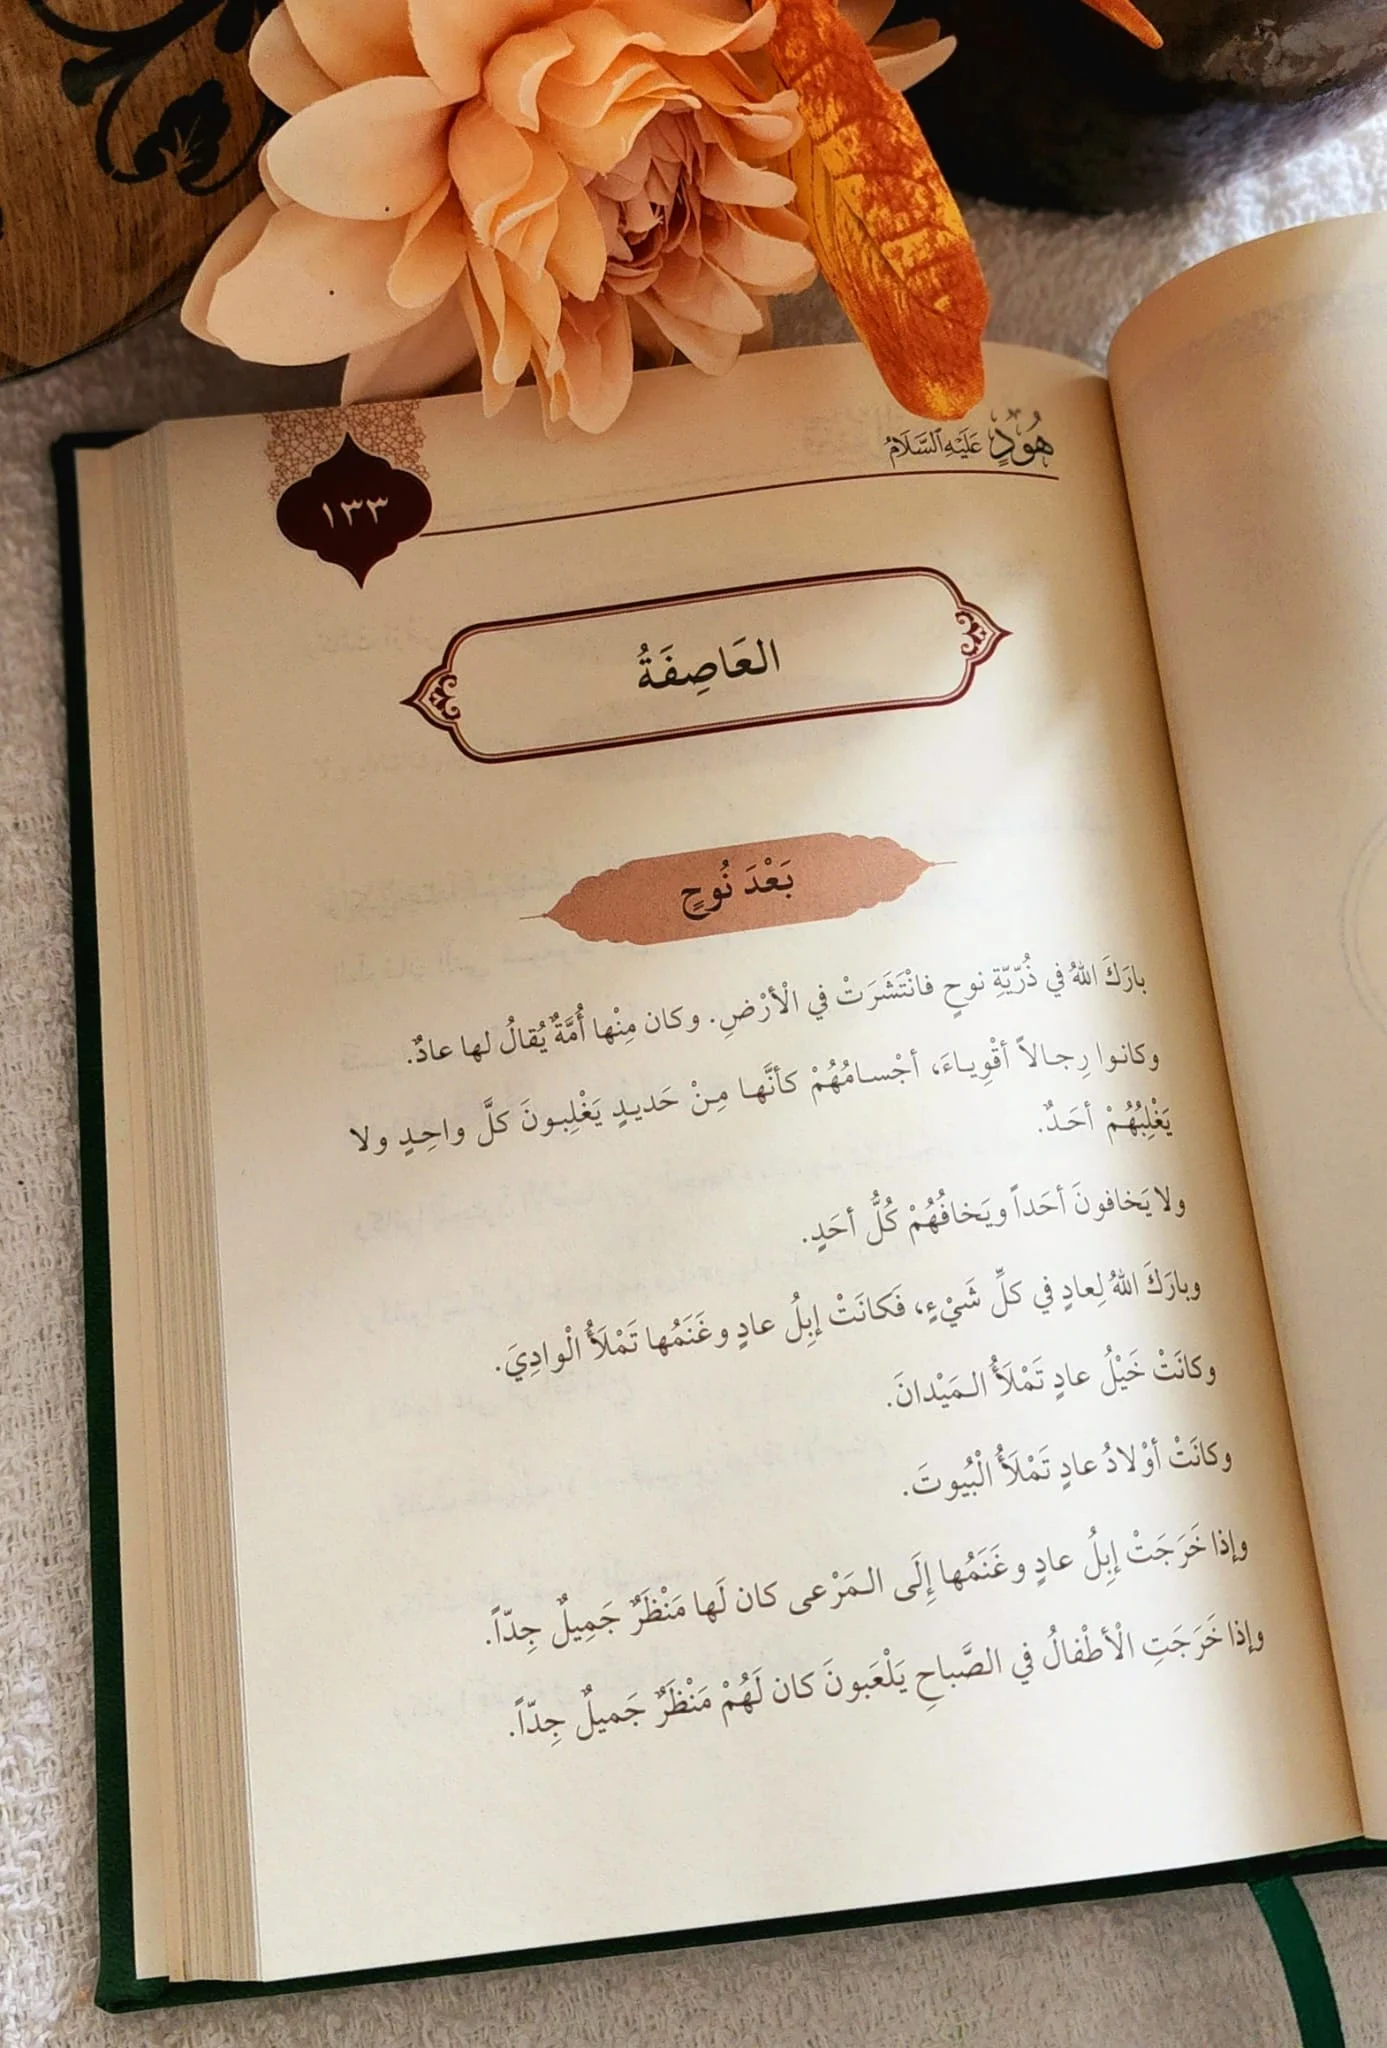 هُودٍ عَلَيْهِ ٱلسَّلَامُ
١٣٣
العَاصِفَةُ
بَعْدَ نُوحٍ
بارَكَ اللهُ في ذُرّيّةِ نوحٍ فانْتَشَرَتْ في الْأرْضِ. وكان مِنْها أُمَّةٌ يُقالُ لها عادٌ.
وكانوا رِجالاً أقْوِياءَ، أجْسامُهُمْ كأنَّها مِنْ حَديدٍ يَغْلِبونَ كلَّ واحِدٍ ولا
يَغْلِبُهُمْ أحَدٌ.
ولا يَخافونَ أحَداً ويَخافُهُمْ كُلُّ أحَدٍ.
وبارَكَ اللهُ لِعادٍ في كلِّ شَيْءٍ، فَكانَتْ إبِلُ عادٍ وغَنَمُها تَمْلَأُ الْوادِيَ.
وكانَتْ خَيْلُ عادٍ تَمْلَأُ المَيْدانَ.
وكانَتْ أوْلادُ عادٍ تَمْلَأُ الْبُيوتَ.
وإذا خَرَجَتْ إبِلُ عادٍ وغَنَمُها إِلَى المَرْعى كان لَها مَنْظَرٌ جَمِيلٌ جِدّاً.
وإذا خَرَجَتِ الْأطْفالُ في الصَّباحِ يَلْعَبونَ كان لَهُمْ مَنْظَرٌ جَميلٌ جِدّاً.